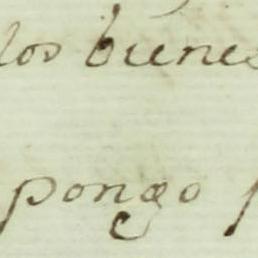 los bienes
pongo